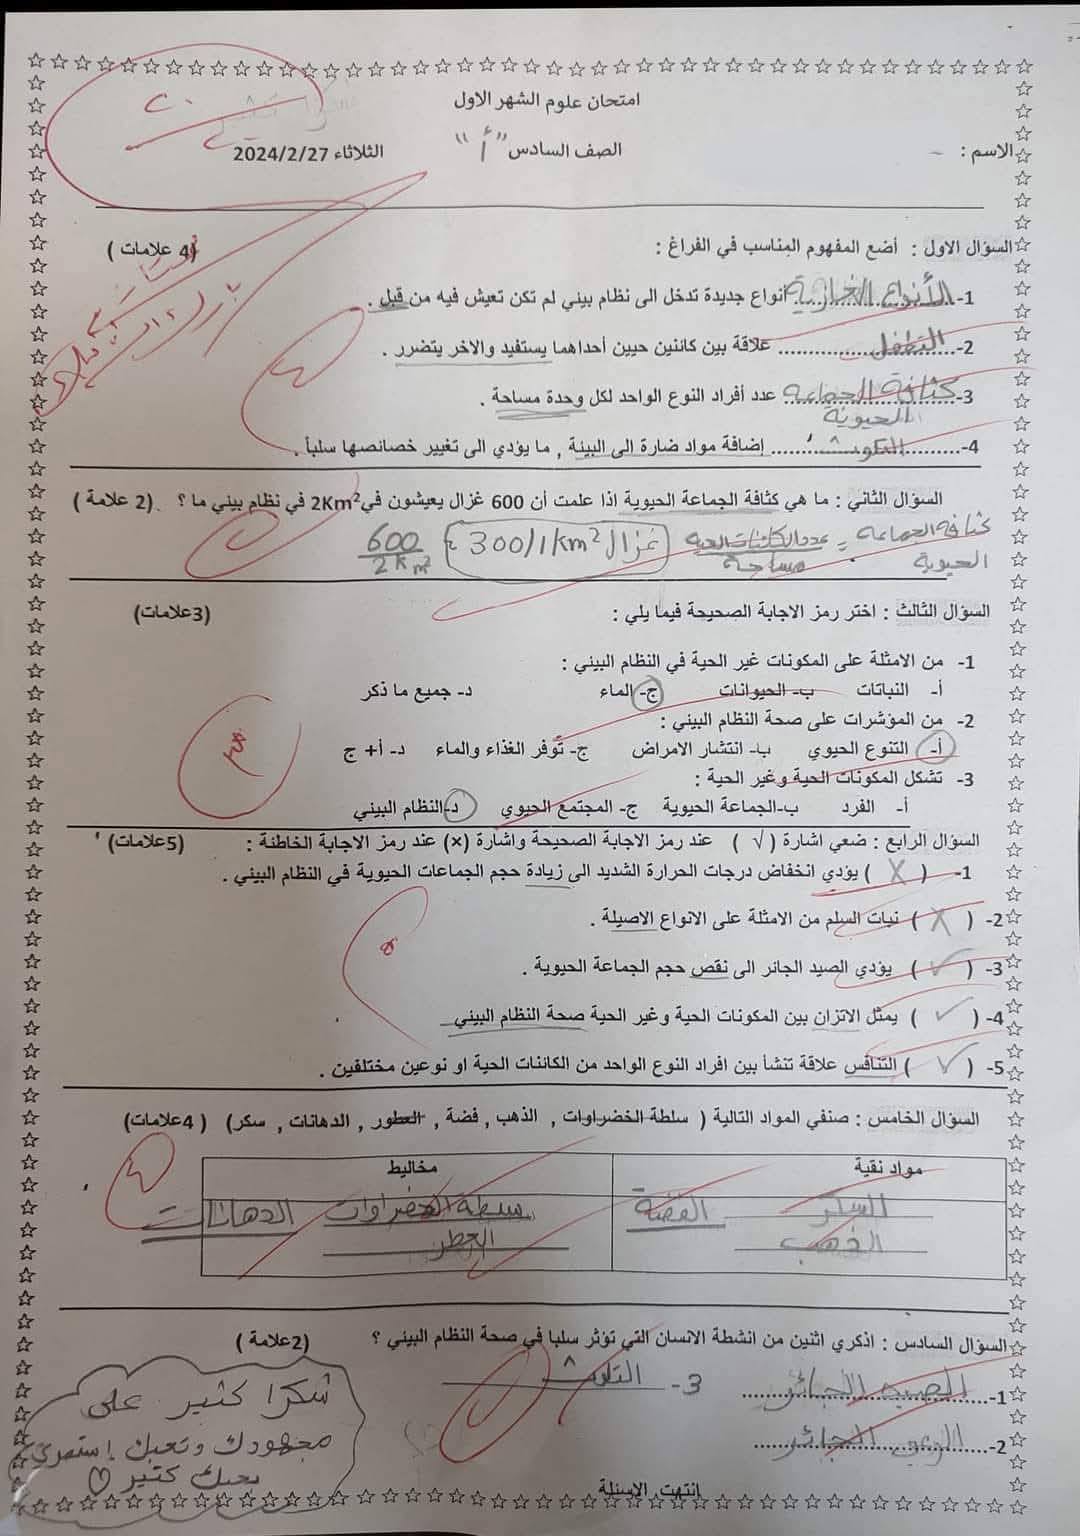 امتحان علوم الشهر الاول
الاسم : الصف السادس "أ" الثلاثاء 2024/2/27
٢٠
السؤال الاول : أضع المفهوم المناسب في الفراغ : (4 علامات )
1- الأنواع الغازية انواع جديدة تدخل الى نظام بيئي لم تكن تعيش فيه من قبل .
2- التطفل علاقة بين كائنين حيين أحداهما يستفيد والاخر يتضرر .
3- كثافة الجماعة الحيوية عدد أفراد النوع الواحد لكل وحدة مساحة .
4- التلوث إضافة مواد ضارة الى البيئة , ما يؤدي الى تغيير خصائصها سلباً .
٤
السؤال الثاني : ما هي كثافة الجماعة الحيوية اذا علمت أن 600 غزال يعيشون في 2Km² في نظام بيئي ما ؟ (2 علامة )
كثافة الجماعة الحيوية = عدد الكائنات الحية / مساحة
600 / 2Km² غزال 300/1km²
٢
السؤال الثالث : اختر رمز الاجابة الصحيحة فيما يلي : (3علامات)
1- من الامثلة على المكونات غير الحية في النظام البيئي :
أ- النباتات ب- الحيوانات ج- الماء د- جميع ما ذكر
2- من المؤشرات على صحة النظام البيئي :
أ- التنوع الحيوي ب- انتشار الامراض ج- توفر الغذاء والماء د- أ+ ج
3- تشكل المكونات الحية وغير الحية :
أ- الفرد ب-الجماعة الحيوية ج- المجتمع الحيوي د-النظام البيئي
٣
السؤال الرابع : ضعي اشارة ( √ ) عند رمز الاجابة الصحيحة واشارة (×) عند رمز الاجابة الخاطئة : (5علامات)
1- ( X ) يؤدي انخفاض درجات الحرارة الشديد الى زيادة حجم الجماعات الحيوية في النظام البيئي .
2- ( X ) نبات السلم من الامثلة على الانواع الاصيلة .
3- ( ✓ ) يؤدي الصيد الجائر الى نقص حجم الجماعة الحيوية .
4- ( ✓ ) يمثل الاتزان بين المكونات الحية وغير الحية صحة النظام البيئي
5- ( ✓ ) التنافس علاقة تنشأ بين افراد النوع الواحد من الكائنات الحية او نوعين مختلفين .
٥
السؤال الخامس : صنفي المواد التالية ( سلطة الخضراوات , الذهب , فضة , العطور , الدهانات , سكر) ( 4علامات)
مواد نقية مخاليط
السكر الفضة سلطة الخضراوات الدهانات
الذهب العطر
٤
السؤال السادس : اذكري اثنين من انشطة الانسان التي تؤثر سلبا في صحة النظام البيئي ؟ (2علامة )
1- الصيد الجائر 3- التلوث
2- الرعي الجائر
٢
شكرا كثير على
مجهودك وتعبك إستمري
بحبك كتير ♡
انتهت الاسئلة